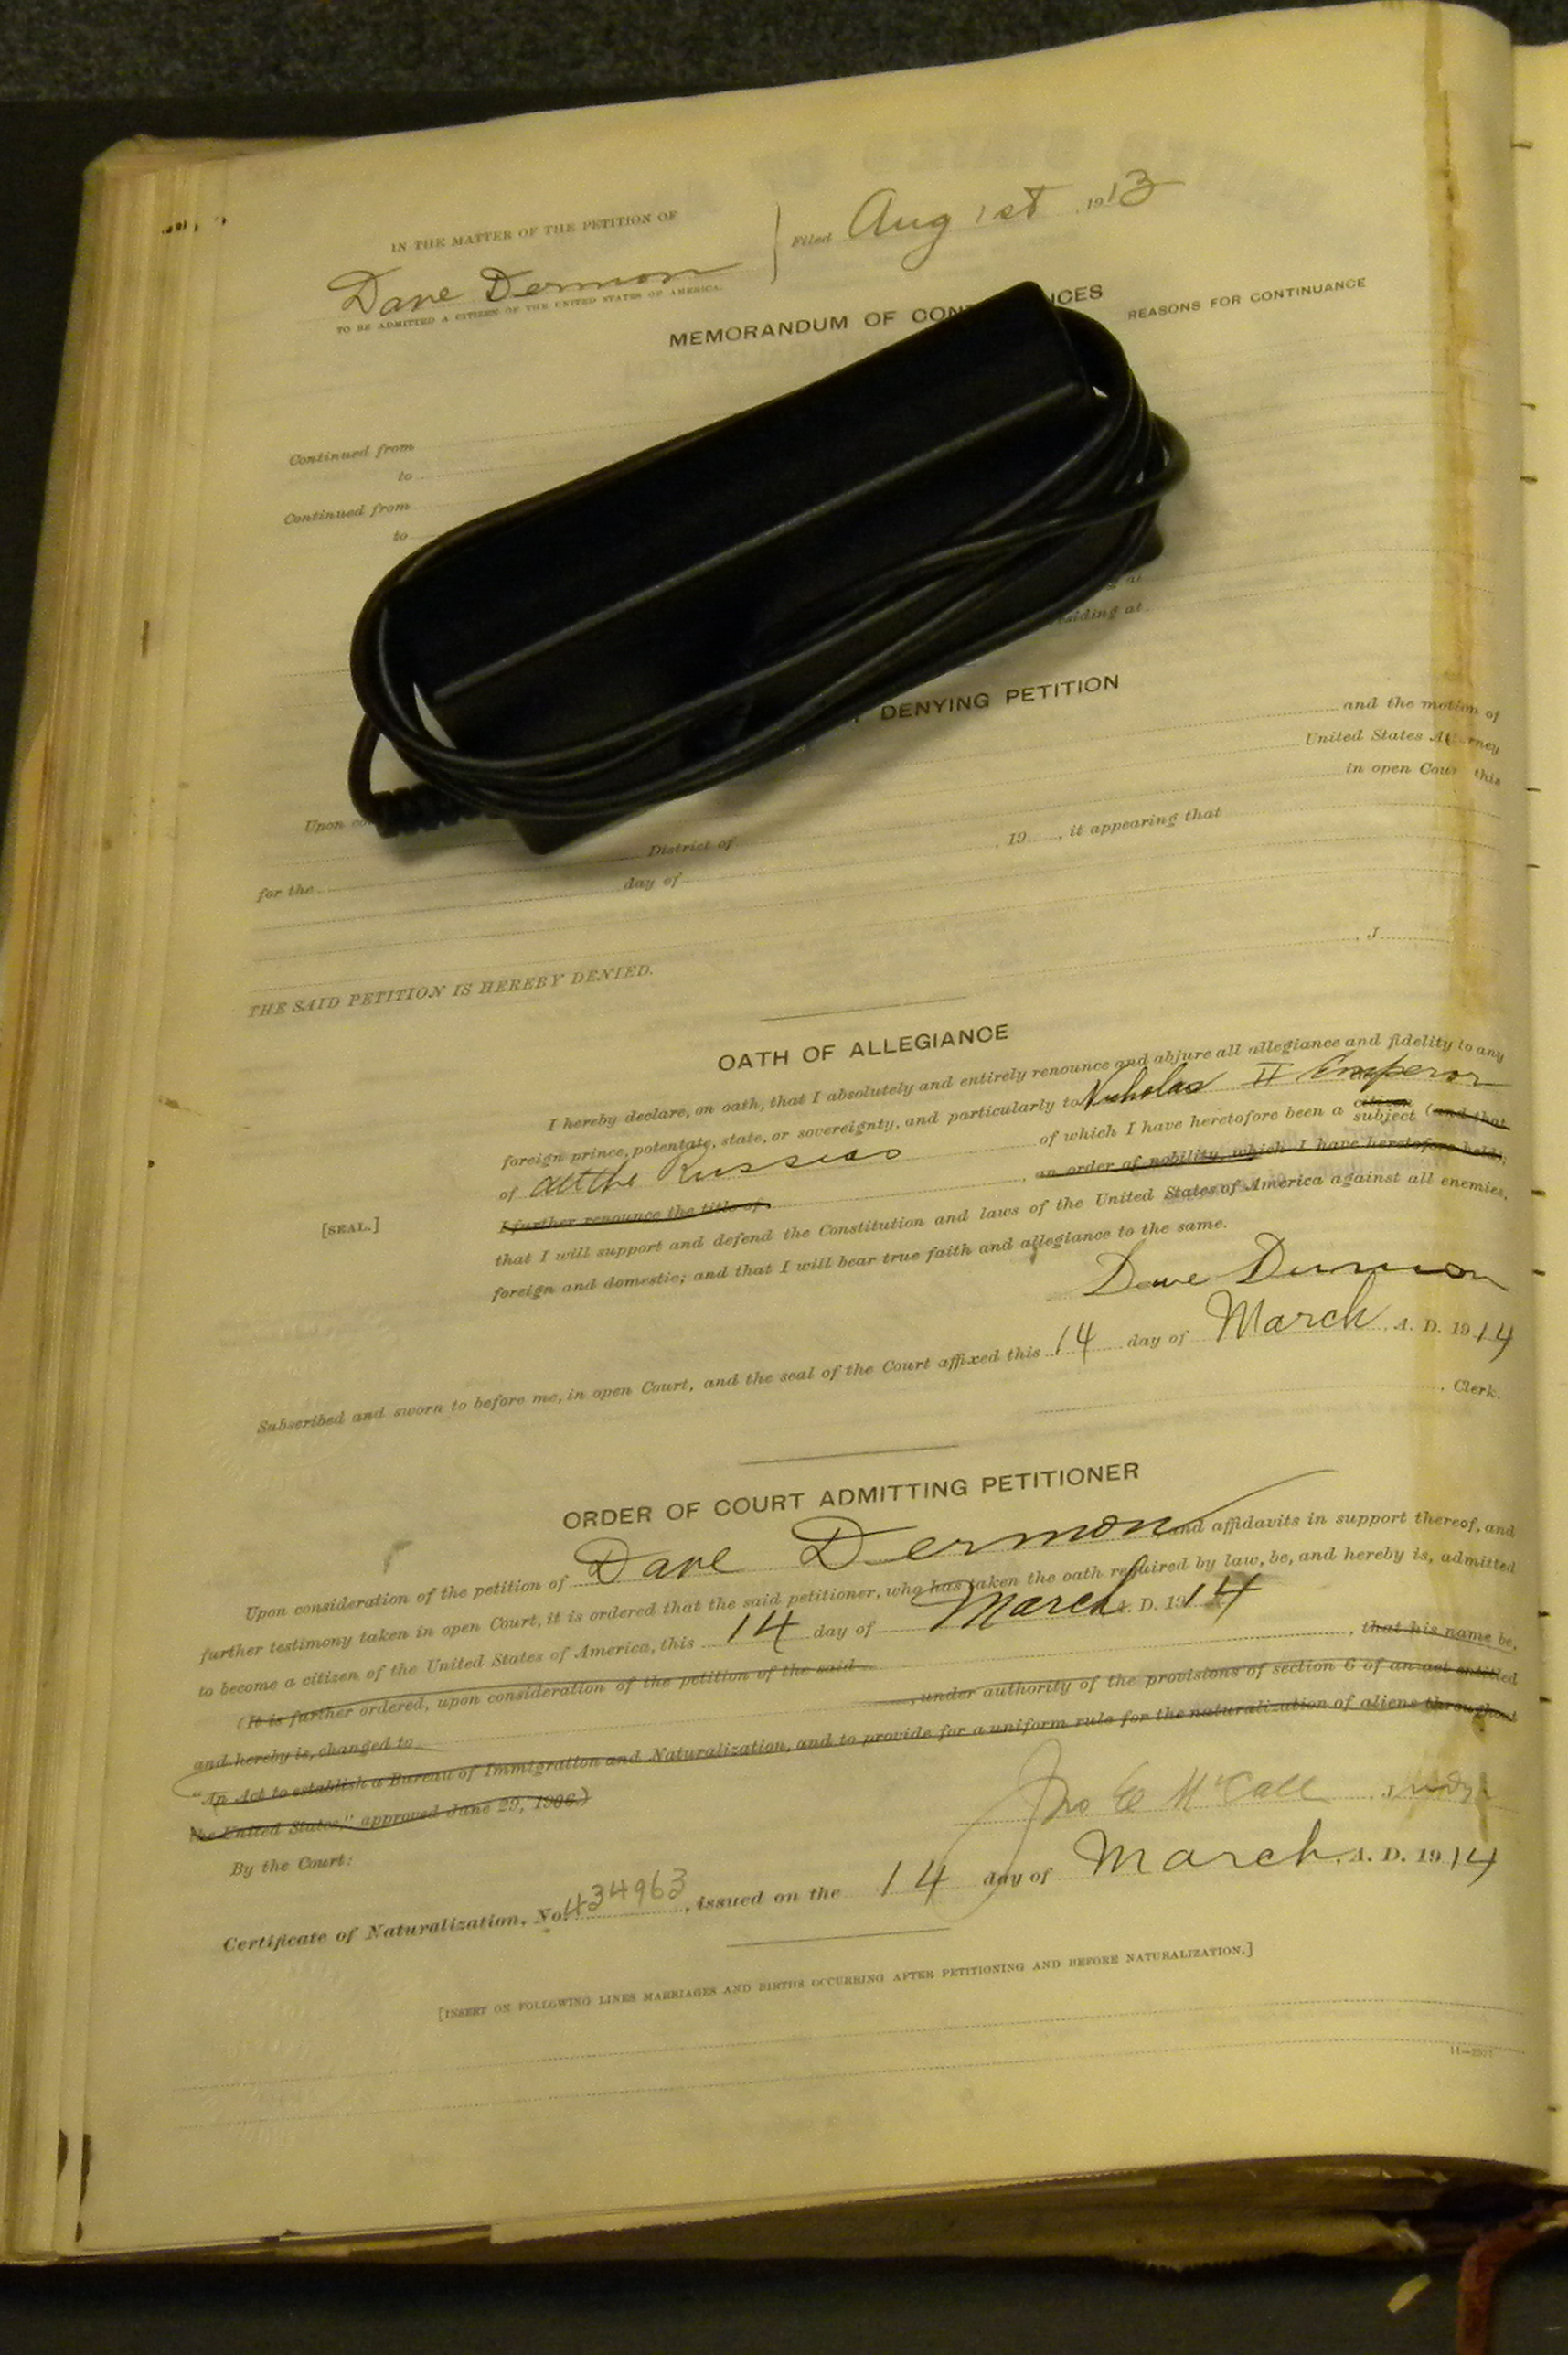 IN THE MATTER OF THE PETITION OF
Dave Dermon
TO BE ADMITTED A CITIZEN OF THE UNITED STATES OF AMERICA.
Filed Aug 1st, 1913
MEMORANDUM OF CON NCES
REASONS FOR CONTINUANCE
Continued from
to
Continued from
to
siding at
DENYING PETITION
and the motion of
United States Attorney
Upon in open Court this
for the District of
day of , 19 , it appearing that
, J
THE SAID PETITION IS HEREBY DENIED.
OATH OF ALLEGIANCE
I hereby declare, on oath, that I absolutely and entirely renounce and abjure all allegiance and fidelity to any
foreign prince, potentate, state, or sovereignty, and particularly to Nicholas II Emperor
of all the Russias of which I have heretofore been a citizen subject (and that
I further renounce the title of , an order of nobility, which I have heretofore held);
[SEAL.]
that I will support and defend the Constitution and laws of the United States of America against all enemies,
foreign and domestic; and that I will bear true faith and allegiance to the same.
Dave Dermon
Subscribed and sworn to before me, in open Court, and the seal of the Court affixed this 14 day of March, A. D. 1914
, Clerk.
ORDER OF COURT ADMITTING PETITIONER
Upon consideration of the petition of Dave Dermon and affidavits in support thereof, and
further testimony taken in open Court, it is ordered that the said petitioner, who has taken the oath required by law, be, and hereby is, admitted
to become a citizen of the United States of America, this 14 day of March A. D. 1914
(It is further ordered, upon consideration of the petition of the said , that his name be,
and hereby is, changed to , under authority of the provisions of section 6 of an act entitled
"An Act to establish a Bureau of Immigration and Naturalization, and to provide for a uniform rule for the naturalization of aliens throughout
the United States," approved June 29, 1906.)
By the Court:
Jno E McCall, Judge
Certificate of Naturalization, No. 434963, issued on the 14 day of March, A. D. 1914
[INSERT ON FOLLOWING LINES MARRIAGES AND BIRTHS OCCURRING AFTER PETITIONING AND BEFORE NATURALIZATION.]